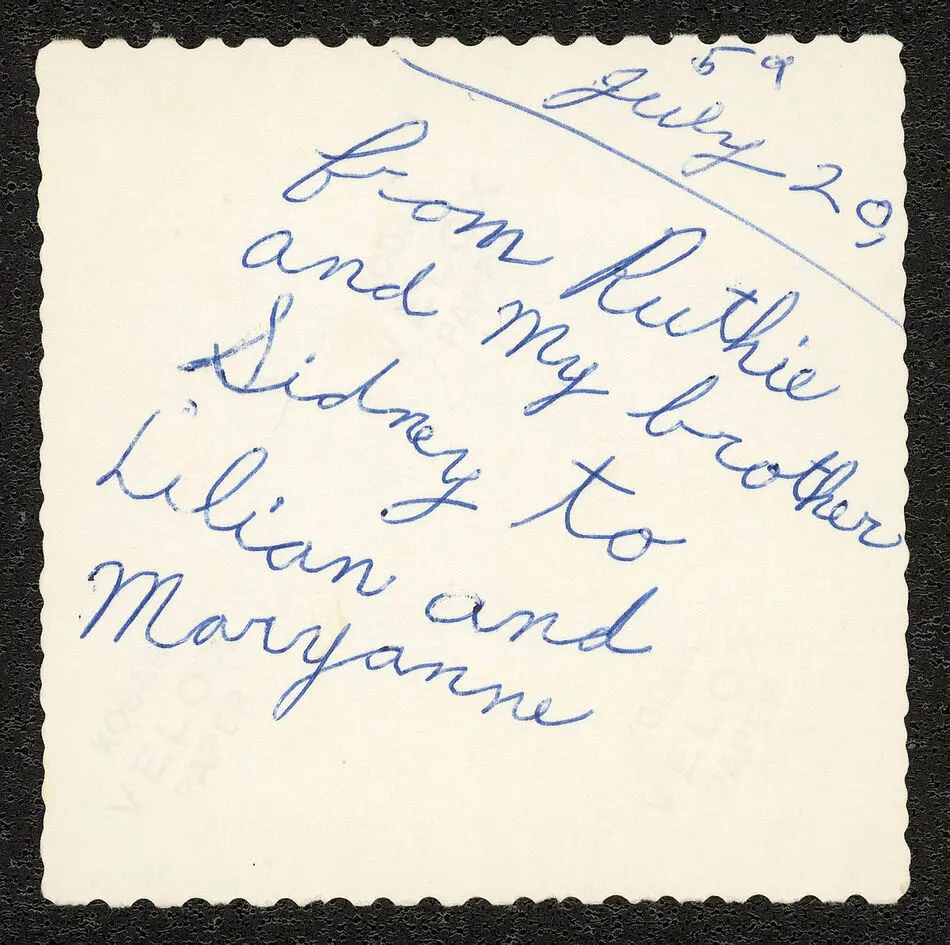 59
July 20,
from Ruthie
and my brother
Sidney to
Lilian and
Maryanne
KODAK
VELOX
PAPER
KODAK
VELOX
PAPER
KODAK
VELOX
PAPER